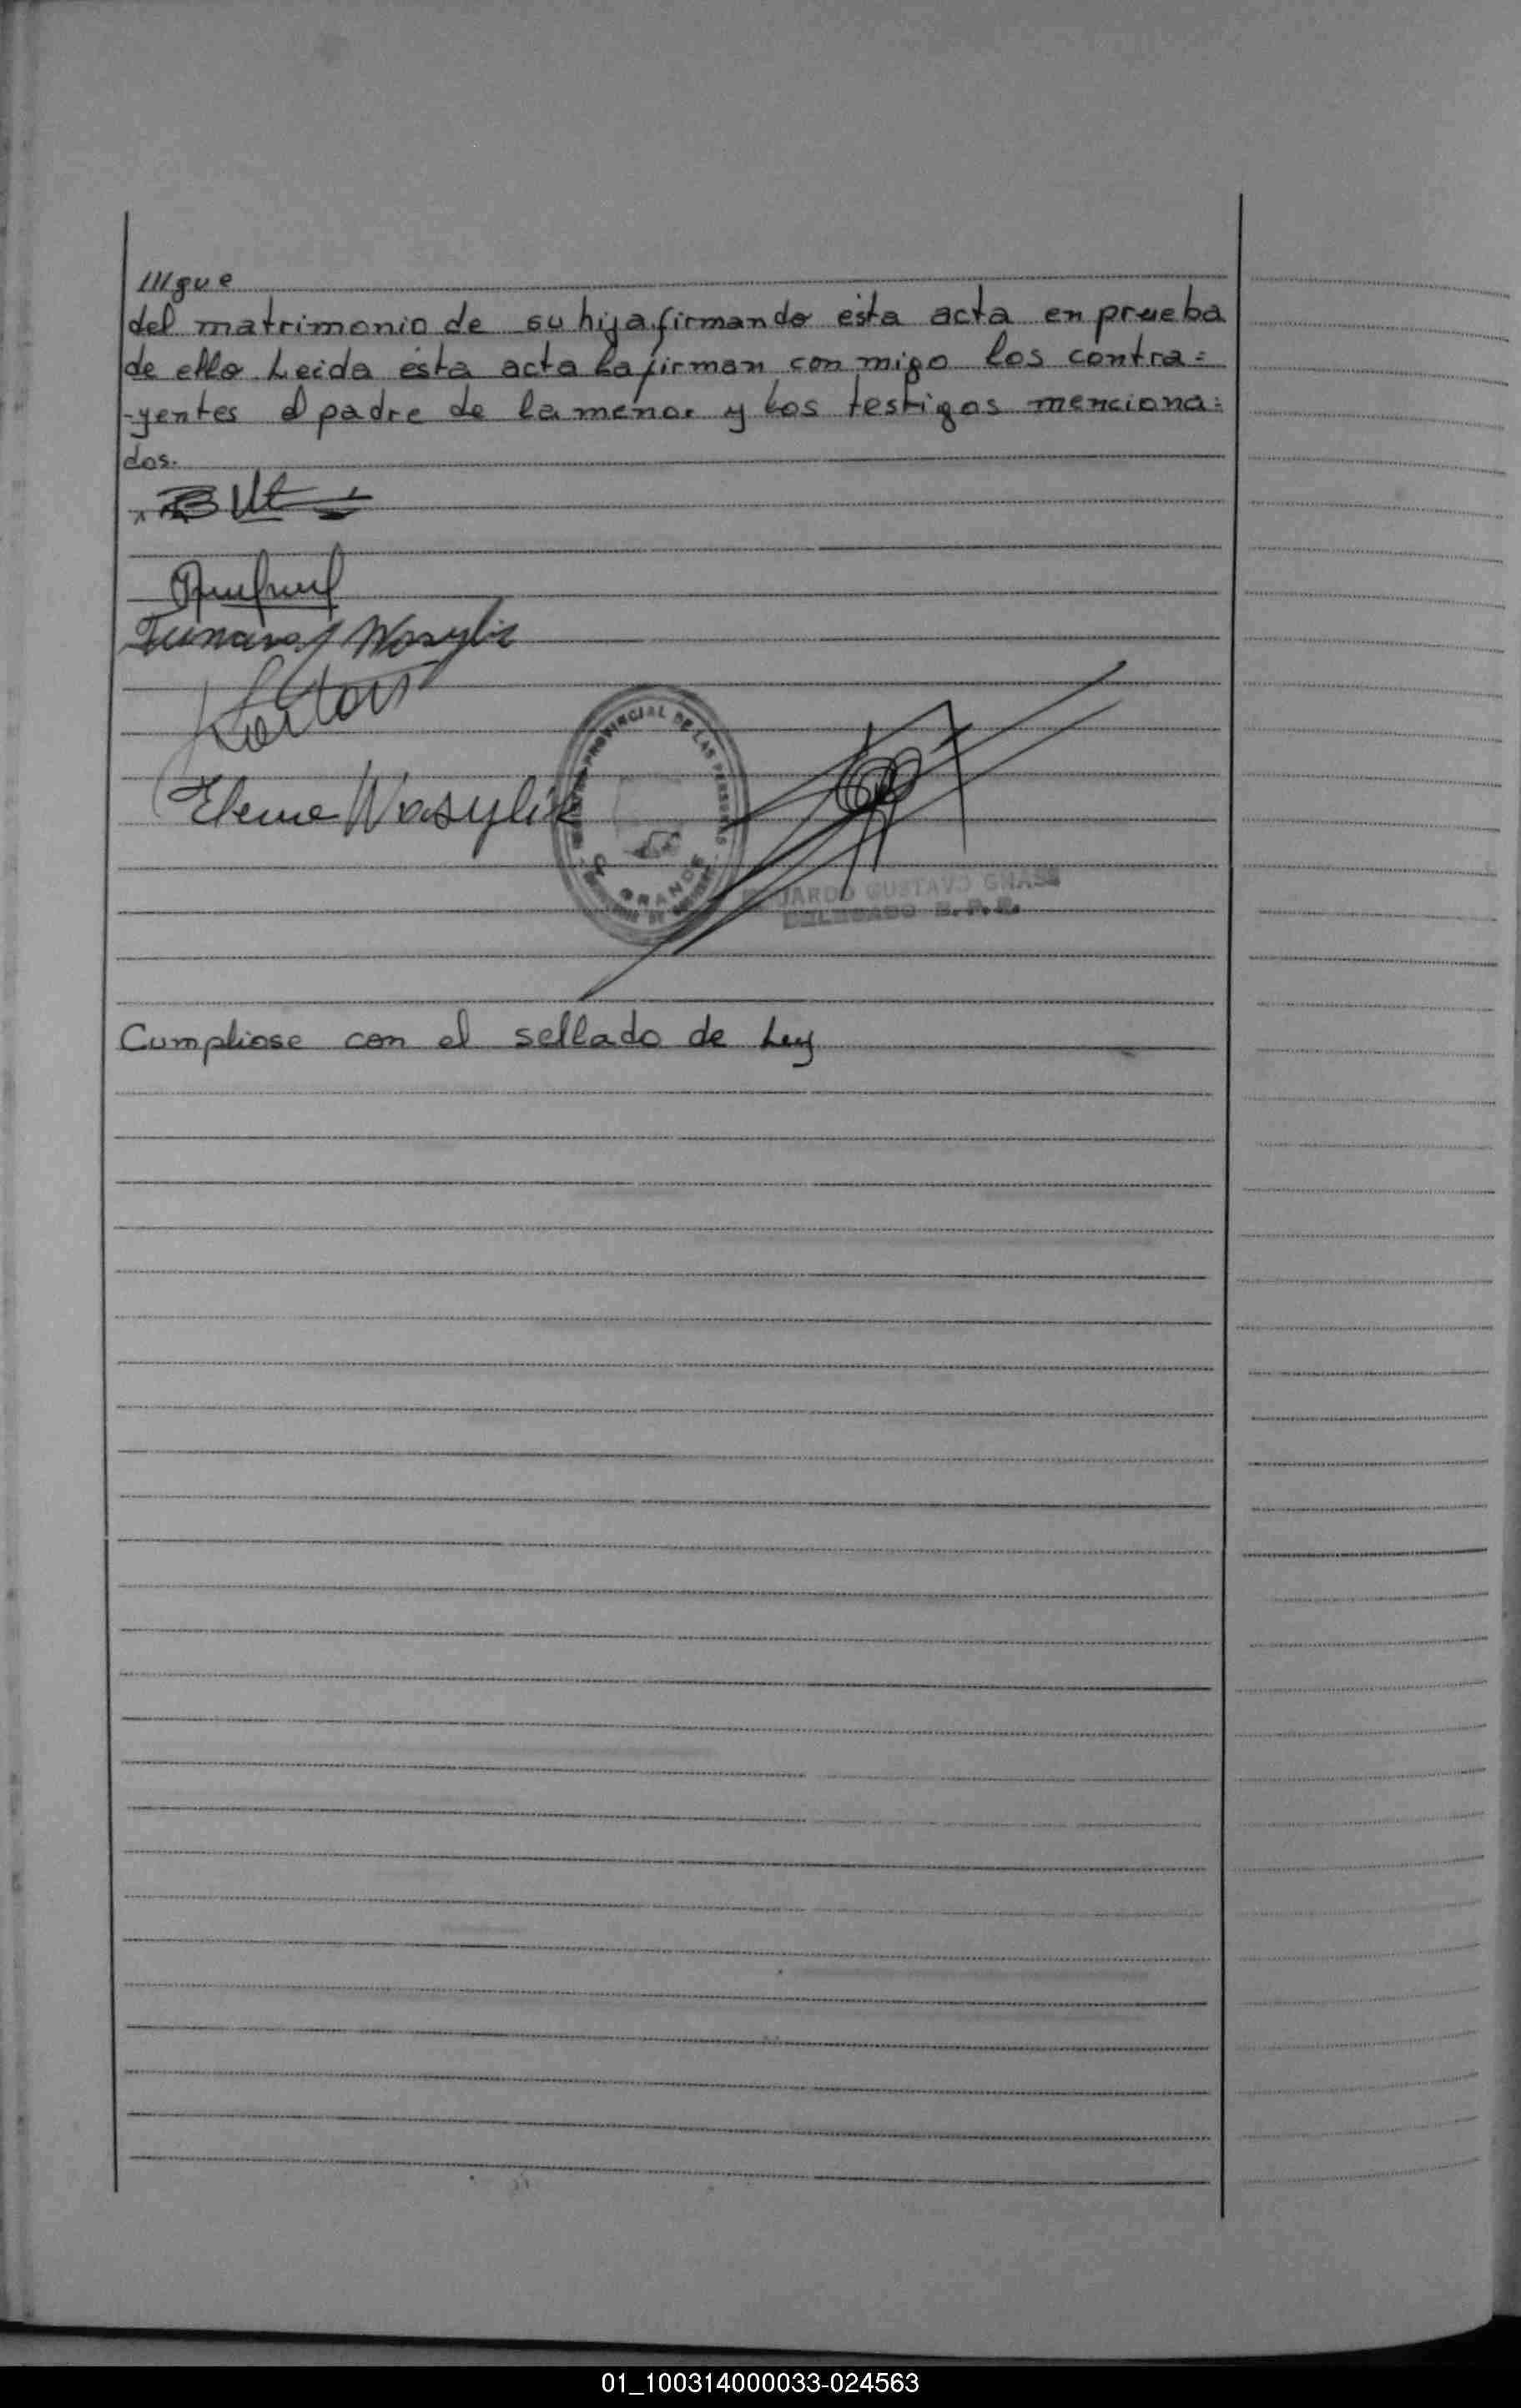 ///gue
del matrimonio de su hija firmando esta acta en prueba
de ello. Leida ésta acta la firman con migo los contra=
-yentes el padre de la menor y los testigos menciona=
dos.
Wasylik
Elena Wasylik
PROVINCIAL DE LAS PERSONAS
GRANDE
EDUARDO GUSTAVO
DELEGADO R. P. P.
Cumpliose con el sellado de Ley
01_100314000033-024563